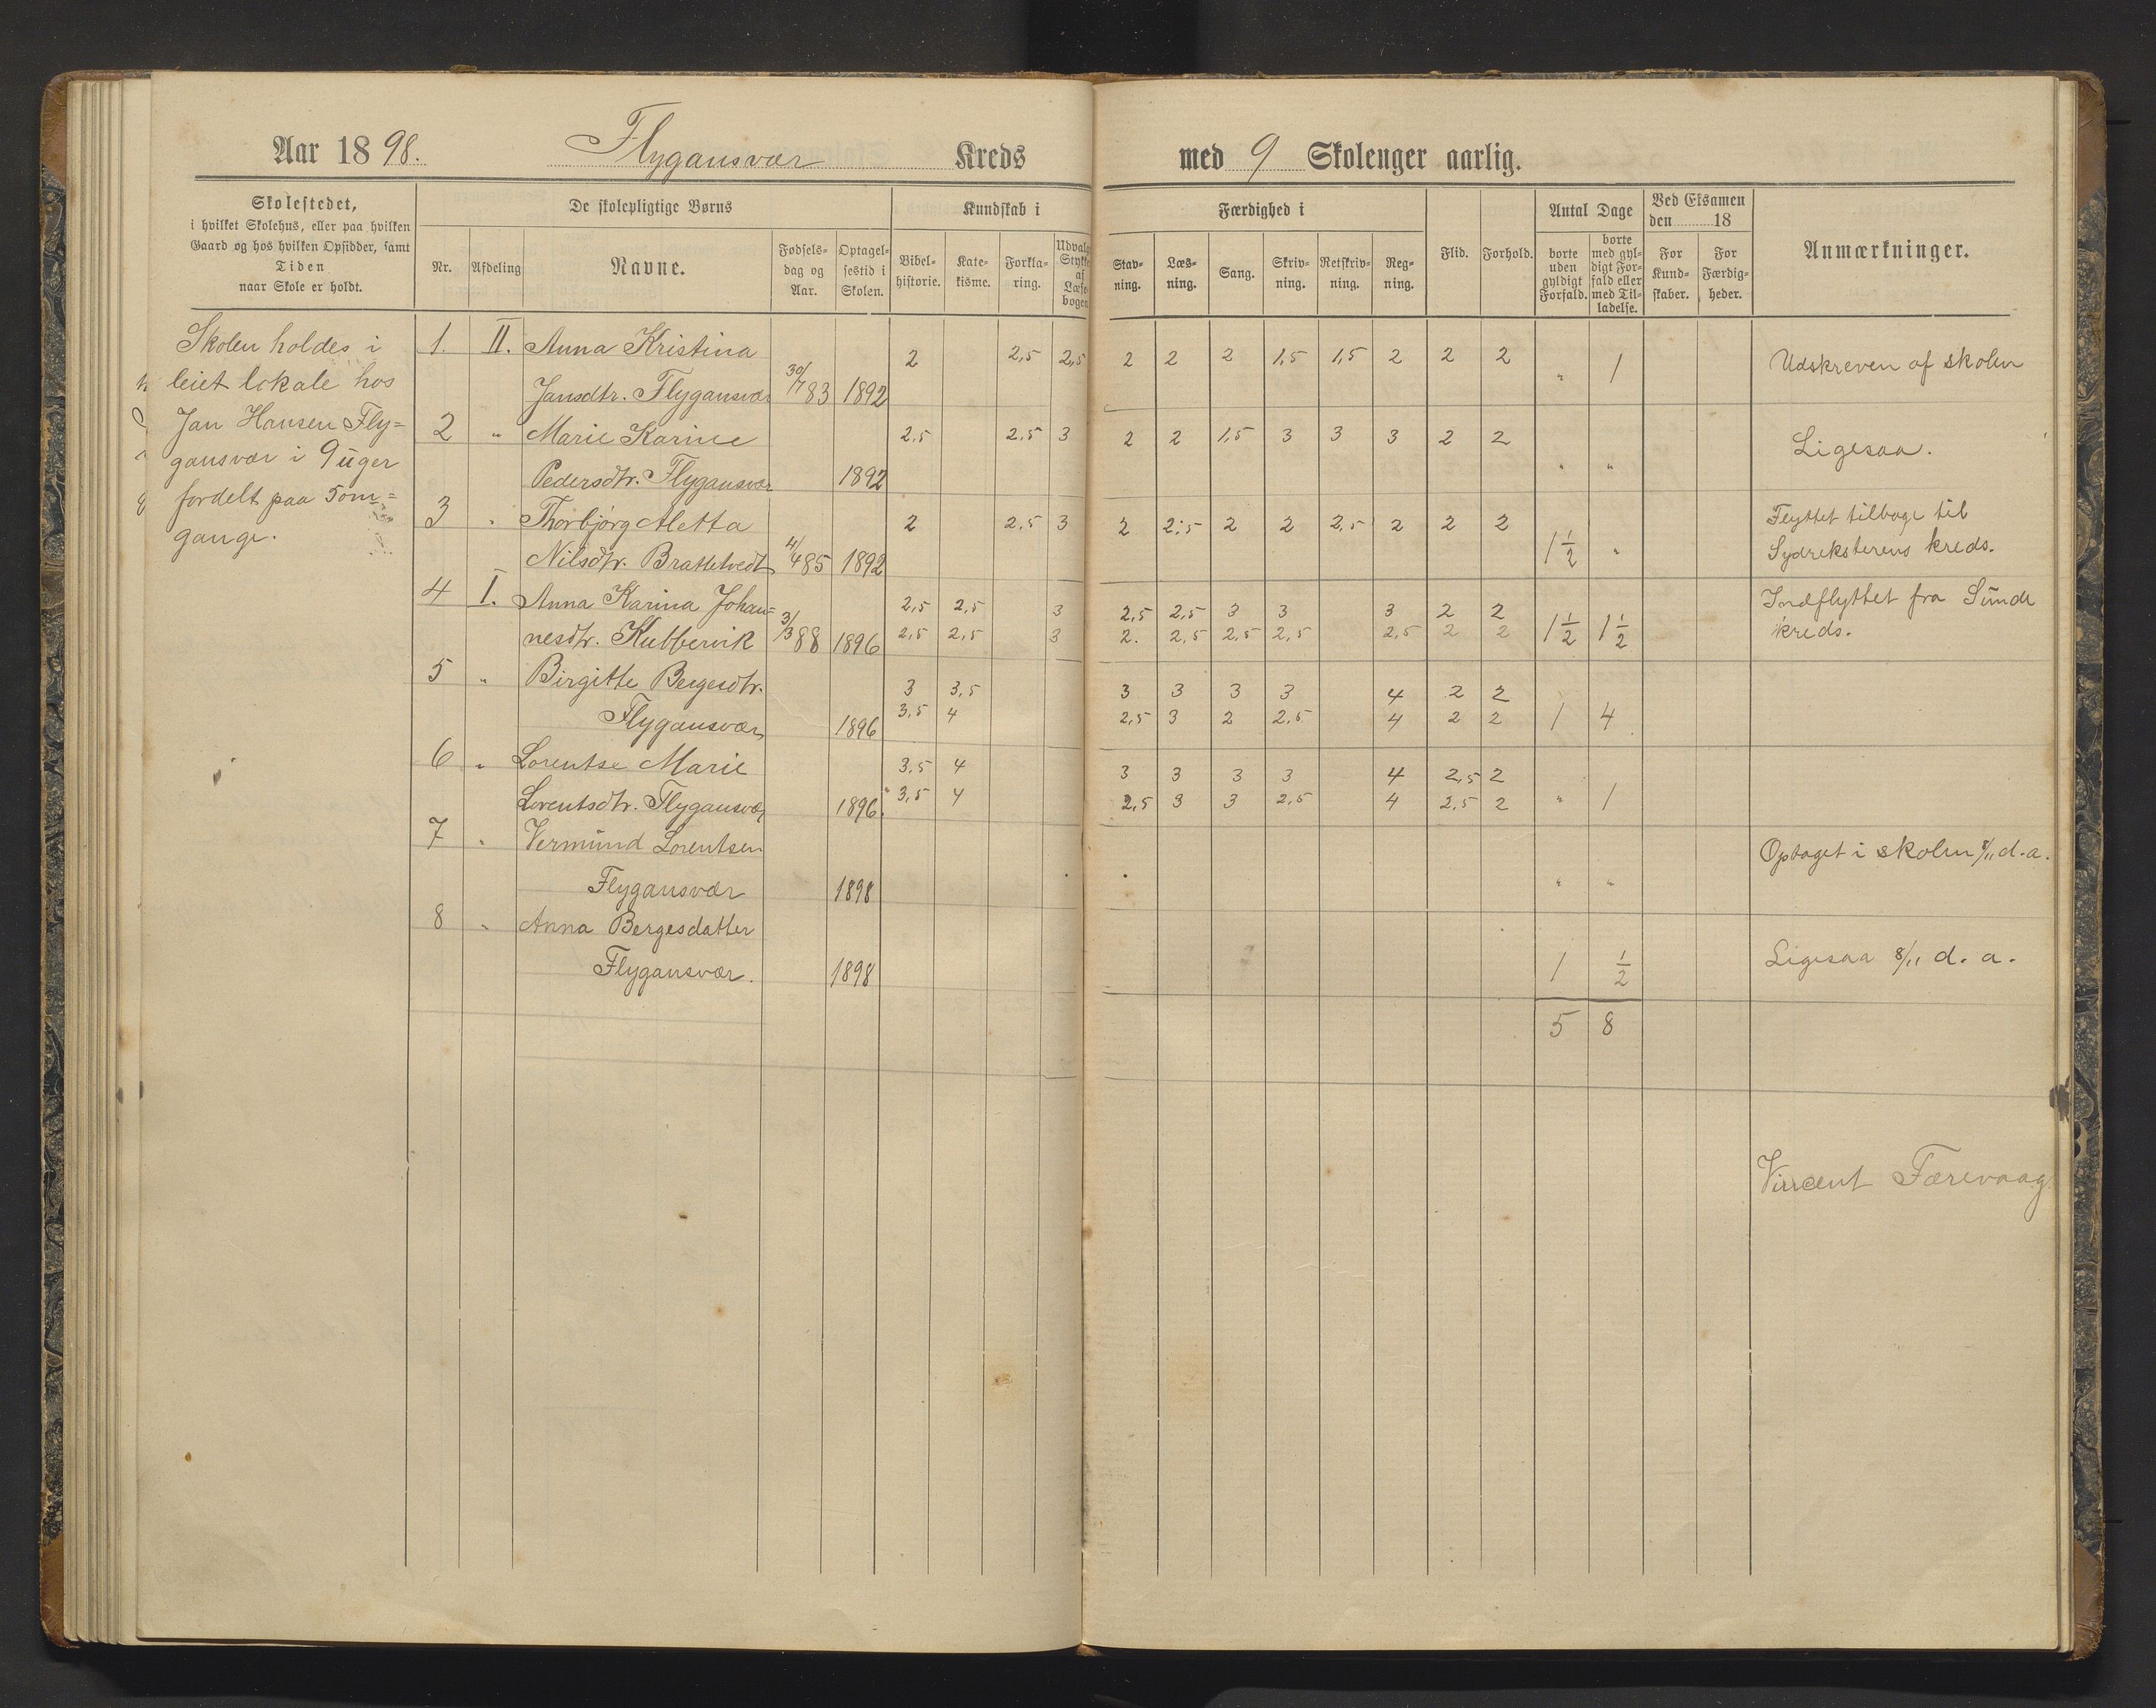 Aar 1898. Flygansvær Kreds med 9 Skoleuger aarlig.
Skolestedet,
i hvilket Skolehus, eller paa hvilken
Gaard og hos hvilken Opsidder, samt
Tiden
naar Skole er holdt.
De skolepligtige Børns
Nr. Afdeling Navne. Fødsels-dag og Aar. Optagel-sestid i Skolen.
Kundskab i
Bibel-historie. Kate-kisme. Forkla-ring. Udvalgte Stykker af Læse-bogen
Færdighed i
Stav-ning. Læs-ning. Sang. Skriv-ning. Retskriv-ning. Reg-ning.
Flid. Forhold.
Antal Dage
borte uden gyldigt Forfald. borte med gyl-digt For-fald eller med Til-ladelse.
Ved Eksamen
den 18
For Kund-skaber. For Færdig-heder.
Anmærkninger.
Skolen holdes i
leiet lokale hos
Jan Hansen Fly=
gansvær i 9 uger
fordelt paa 5 om=
gange.
1. II. Anna Kristina 2 2,5 2,5 2 2 2 1,5 1,5 2 2 2 Udskreven af skolen
Jansdtr. Flygansvær 30/7 83 1892 „ 1
2 „ Marie Karine 2,5 2,5 3 2 2 1,5 3 3 3 2 2 Ligesaa.
Pedersdtr. Flygansvær 1892 „ „
3 „ Thorbjørg Aletta 2 2,5 3 2 2,5 2 2 2,5 2 2 2 Flyttet tilbage til
Nilsdtr. Brattetvedt 4/4 85 1892 1 1/2 „ Sydreksterens kreds.
4 I. Anna Karina Johan= 2,5 2,5 3 2,5 2,5 3 3 3 2 2 Indflyttet fra Sunde
nesdtr. Kubbervik 3/3 88 1896 2,5 2,5 3 2. 2,5 2,5 2,5 2,5 2 2 1 1/2 1 1/2 kreds.
5 „ Birgitte Bergesdtr. 3 3,5 3 3 3 3 4 2 2
Flygansvær 1896 3,5 4 2,5 3 2 2,5 4 2 2 1 4
6 „ Lorentse Marie 3,5 4 3 3 3 3 4 2,5 2
Lorentsdtr. Flygansvær 1896. 3,5 4 2,5 3 3 2,5 4 2,5 2 „ 1
7 „ Vermund Lorentsen Optaget i skolen 8/11 d. a.
Flygansvær 1898 „ „
8 „ Anna Bergesdatter Ligesaa 8/11 d. a.
Flygansvær. 1898 1 1/2
5 8
Vincent Færevaag